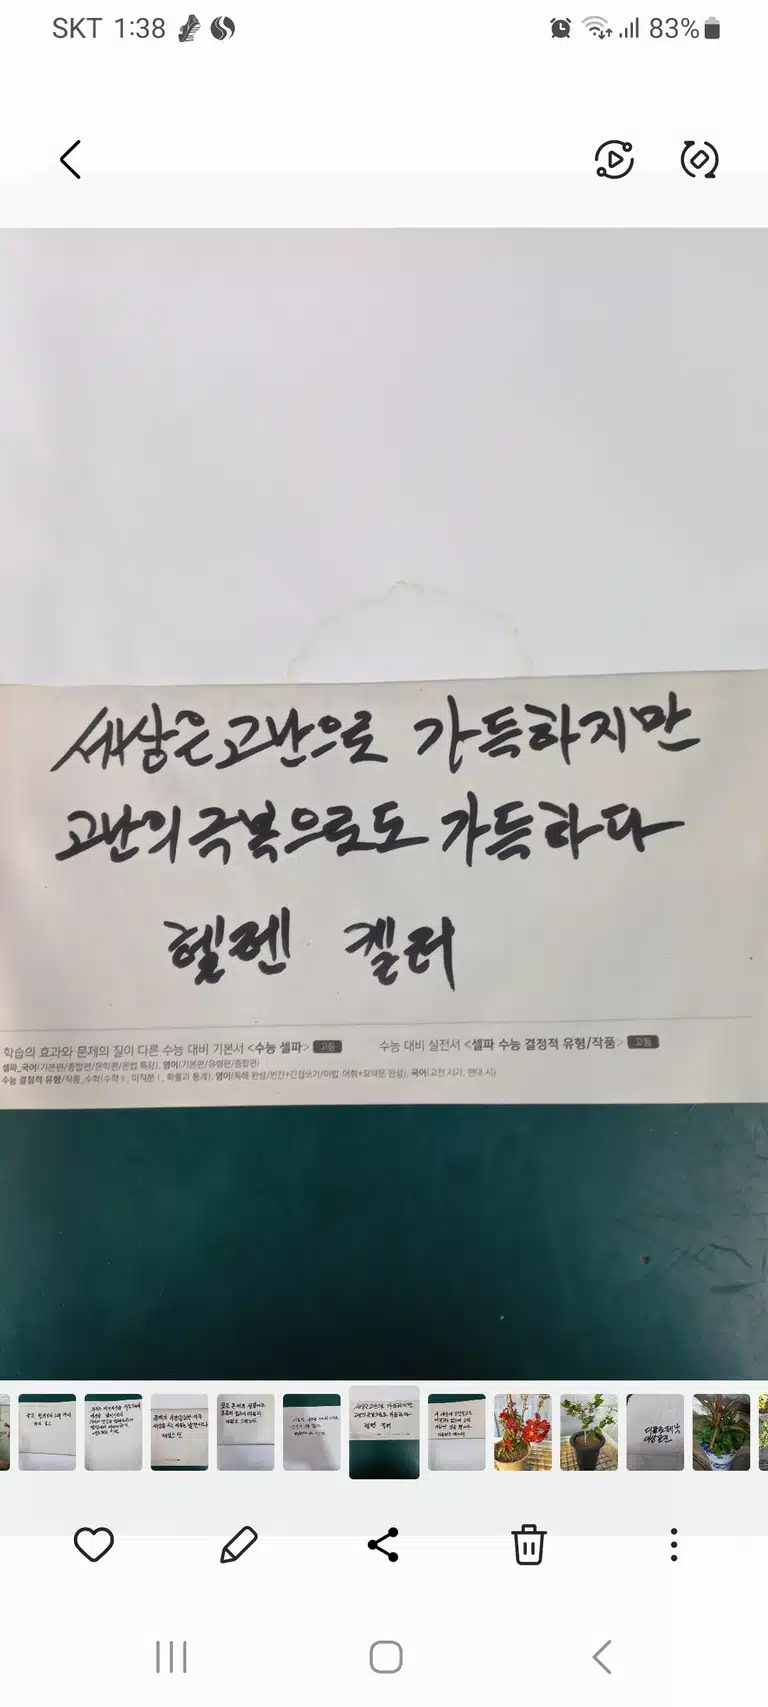 SKT 1:38
83%
세상은 고난으로 가득하지만
고난의 극복으로도 가득하다
헬렌 켈러
학습의 효과와 문제의 질이 다른 수능 대비 기본서 <수능 셀파> 고등 수능 대비 실전서 <셀파 수능 결정적 유형/작품> 고등
셀파_국어(기본편/종합편/문학편/문법 특강), 영어(기본편/유형편/종합편)
수능 결정적 유형/작품_수학(수학Ⅱ, 미적분Ⅰ, 확률과 통계), 영어(독해 완성/빈칸+간접쓰기/어법·어휘+요약문 완성), 국어(고전 시가, 현대 시)